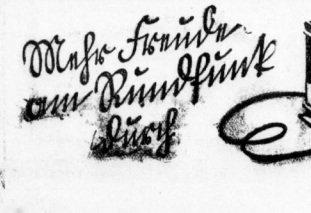 Mehr Freude
am Rundfunk
durch